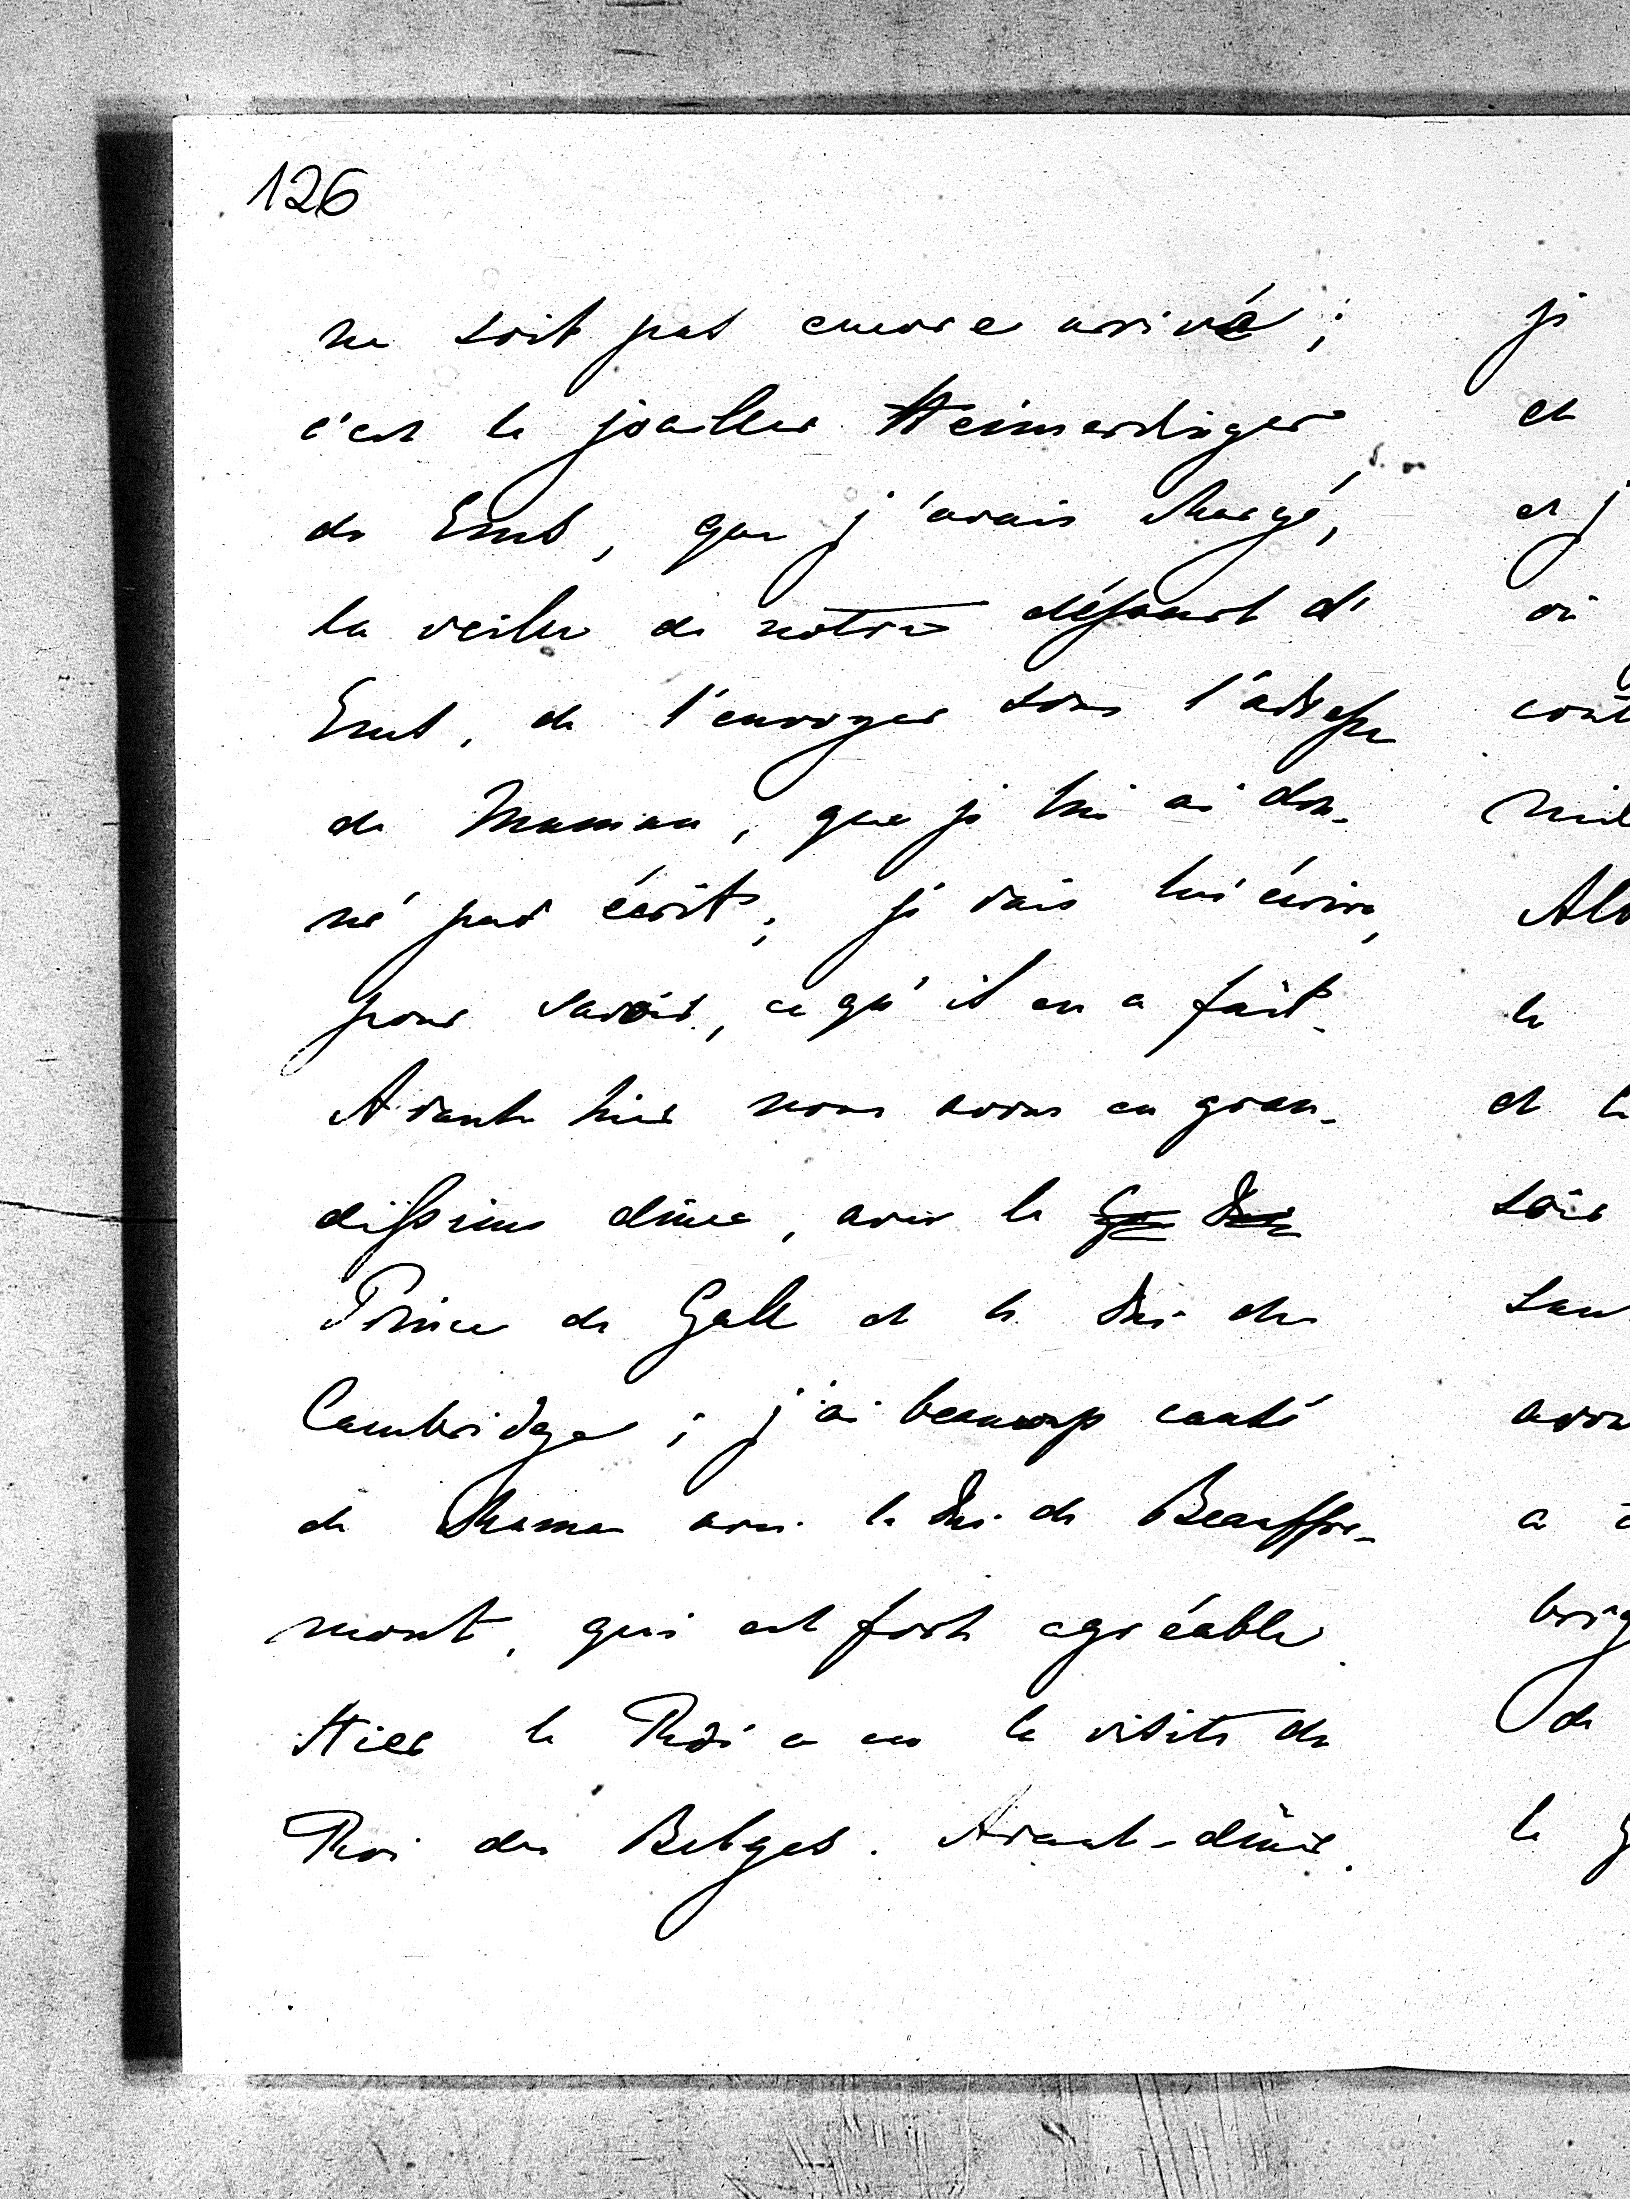 126
ne soit pas encore arrivé ;
c'est le joaillier Heimerdinger
de Ems, que j'avais chargé,
la veille de notre départ d'
Ems, de l'envoyer sous l'adresse
de Maman, que je lui ai don-
né par écrit ; je vais lui écrire,
pour savoir, ce qu'il en a fait.
Avante hier nous avons eu gran-
dissime dîner, avec le Gr Duc
Prince de Gall et le Duc de
Cambridge ; j'ai beaucoup causé
de Maman avec le Duc de Beauffre-
mont, qui est fort agréable.
Hier le Roi a eu la visite du
Roi des Belges. Avant-dîner.
je
et
et j
où
le
et l
soir
a
de
le